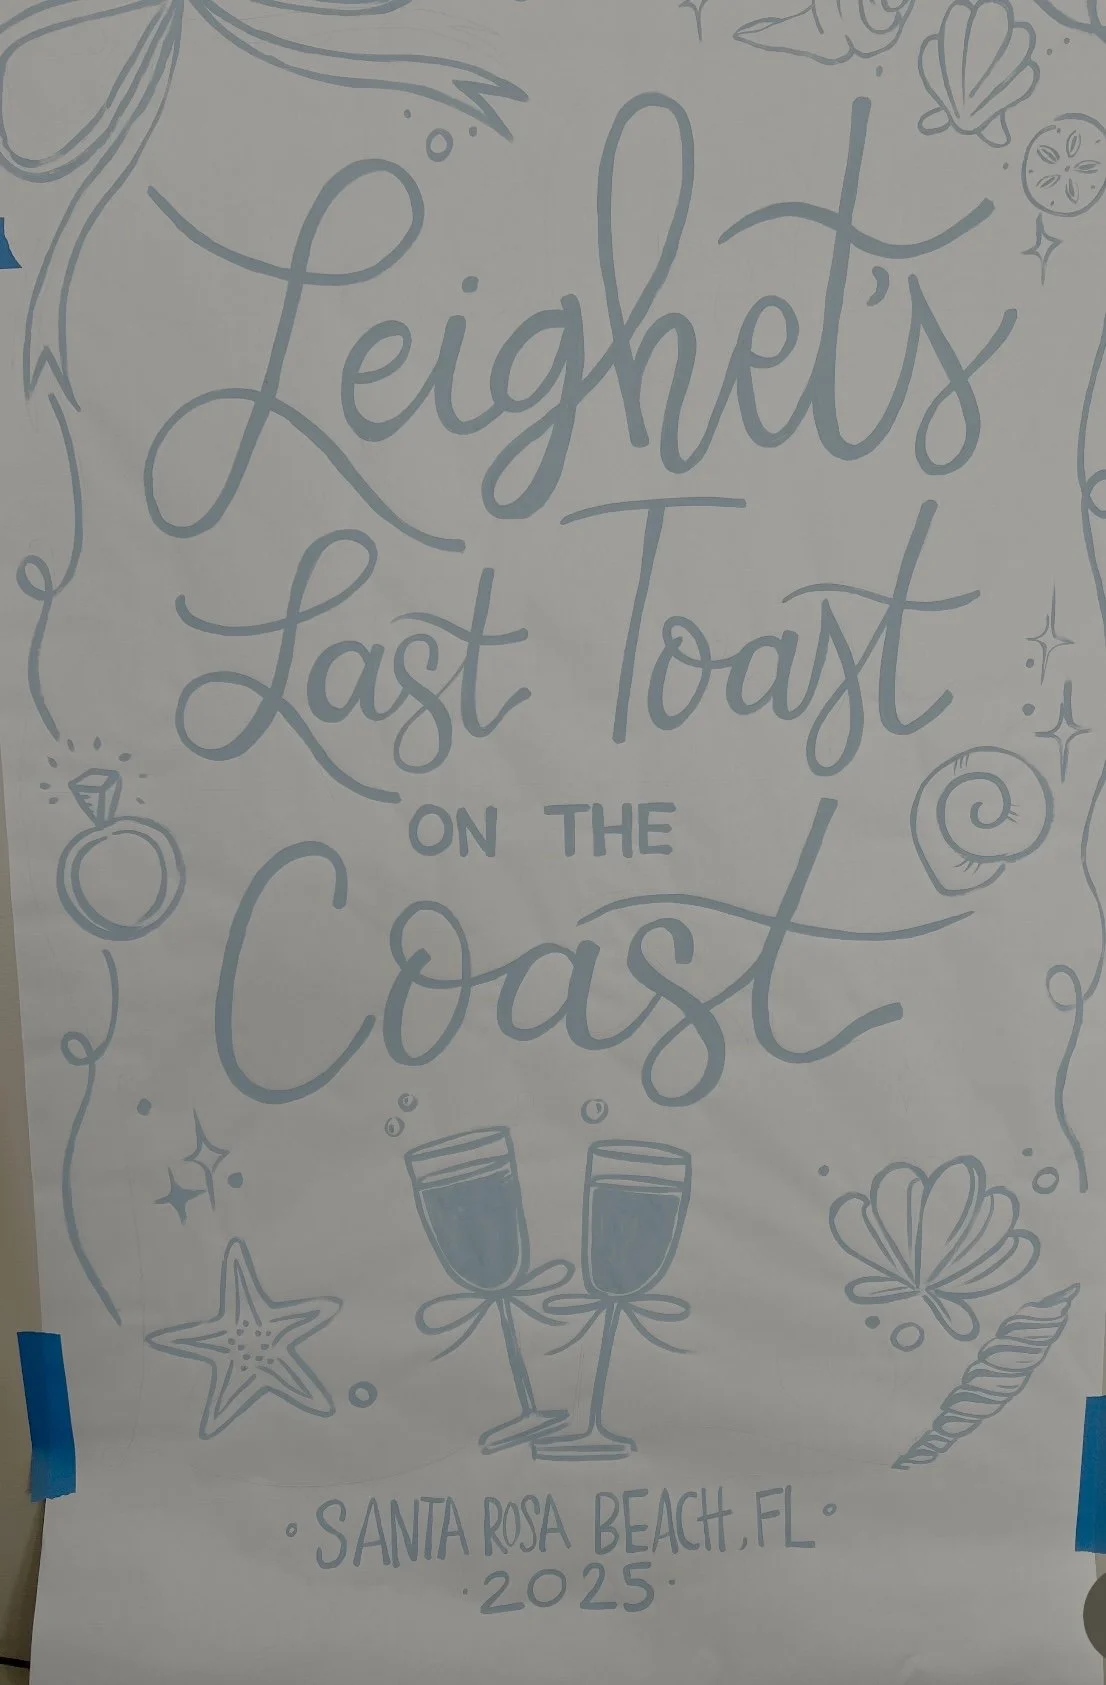 Leighet's
Last Toast
ON THE
Coast
SANTA ROSA BEACH, FL
2025